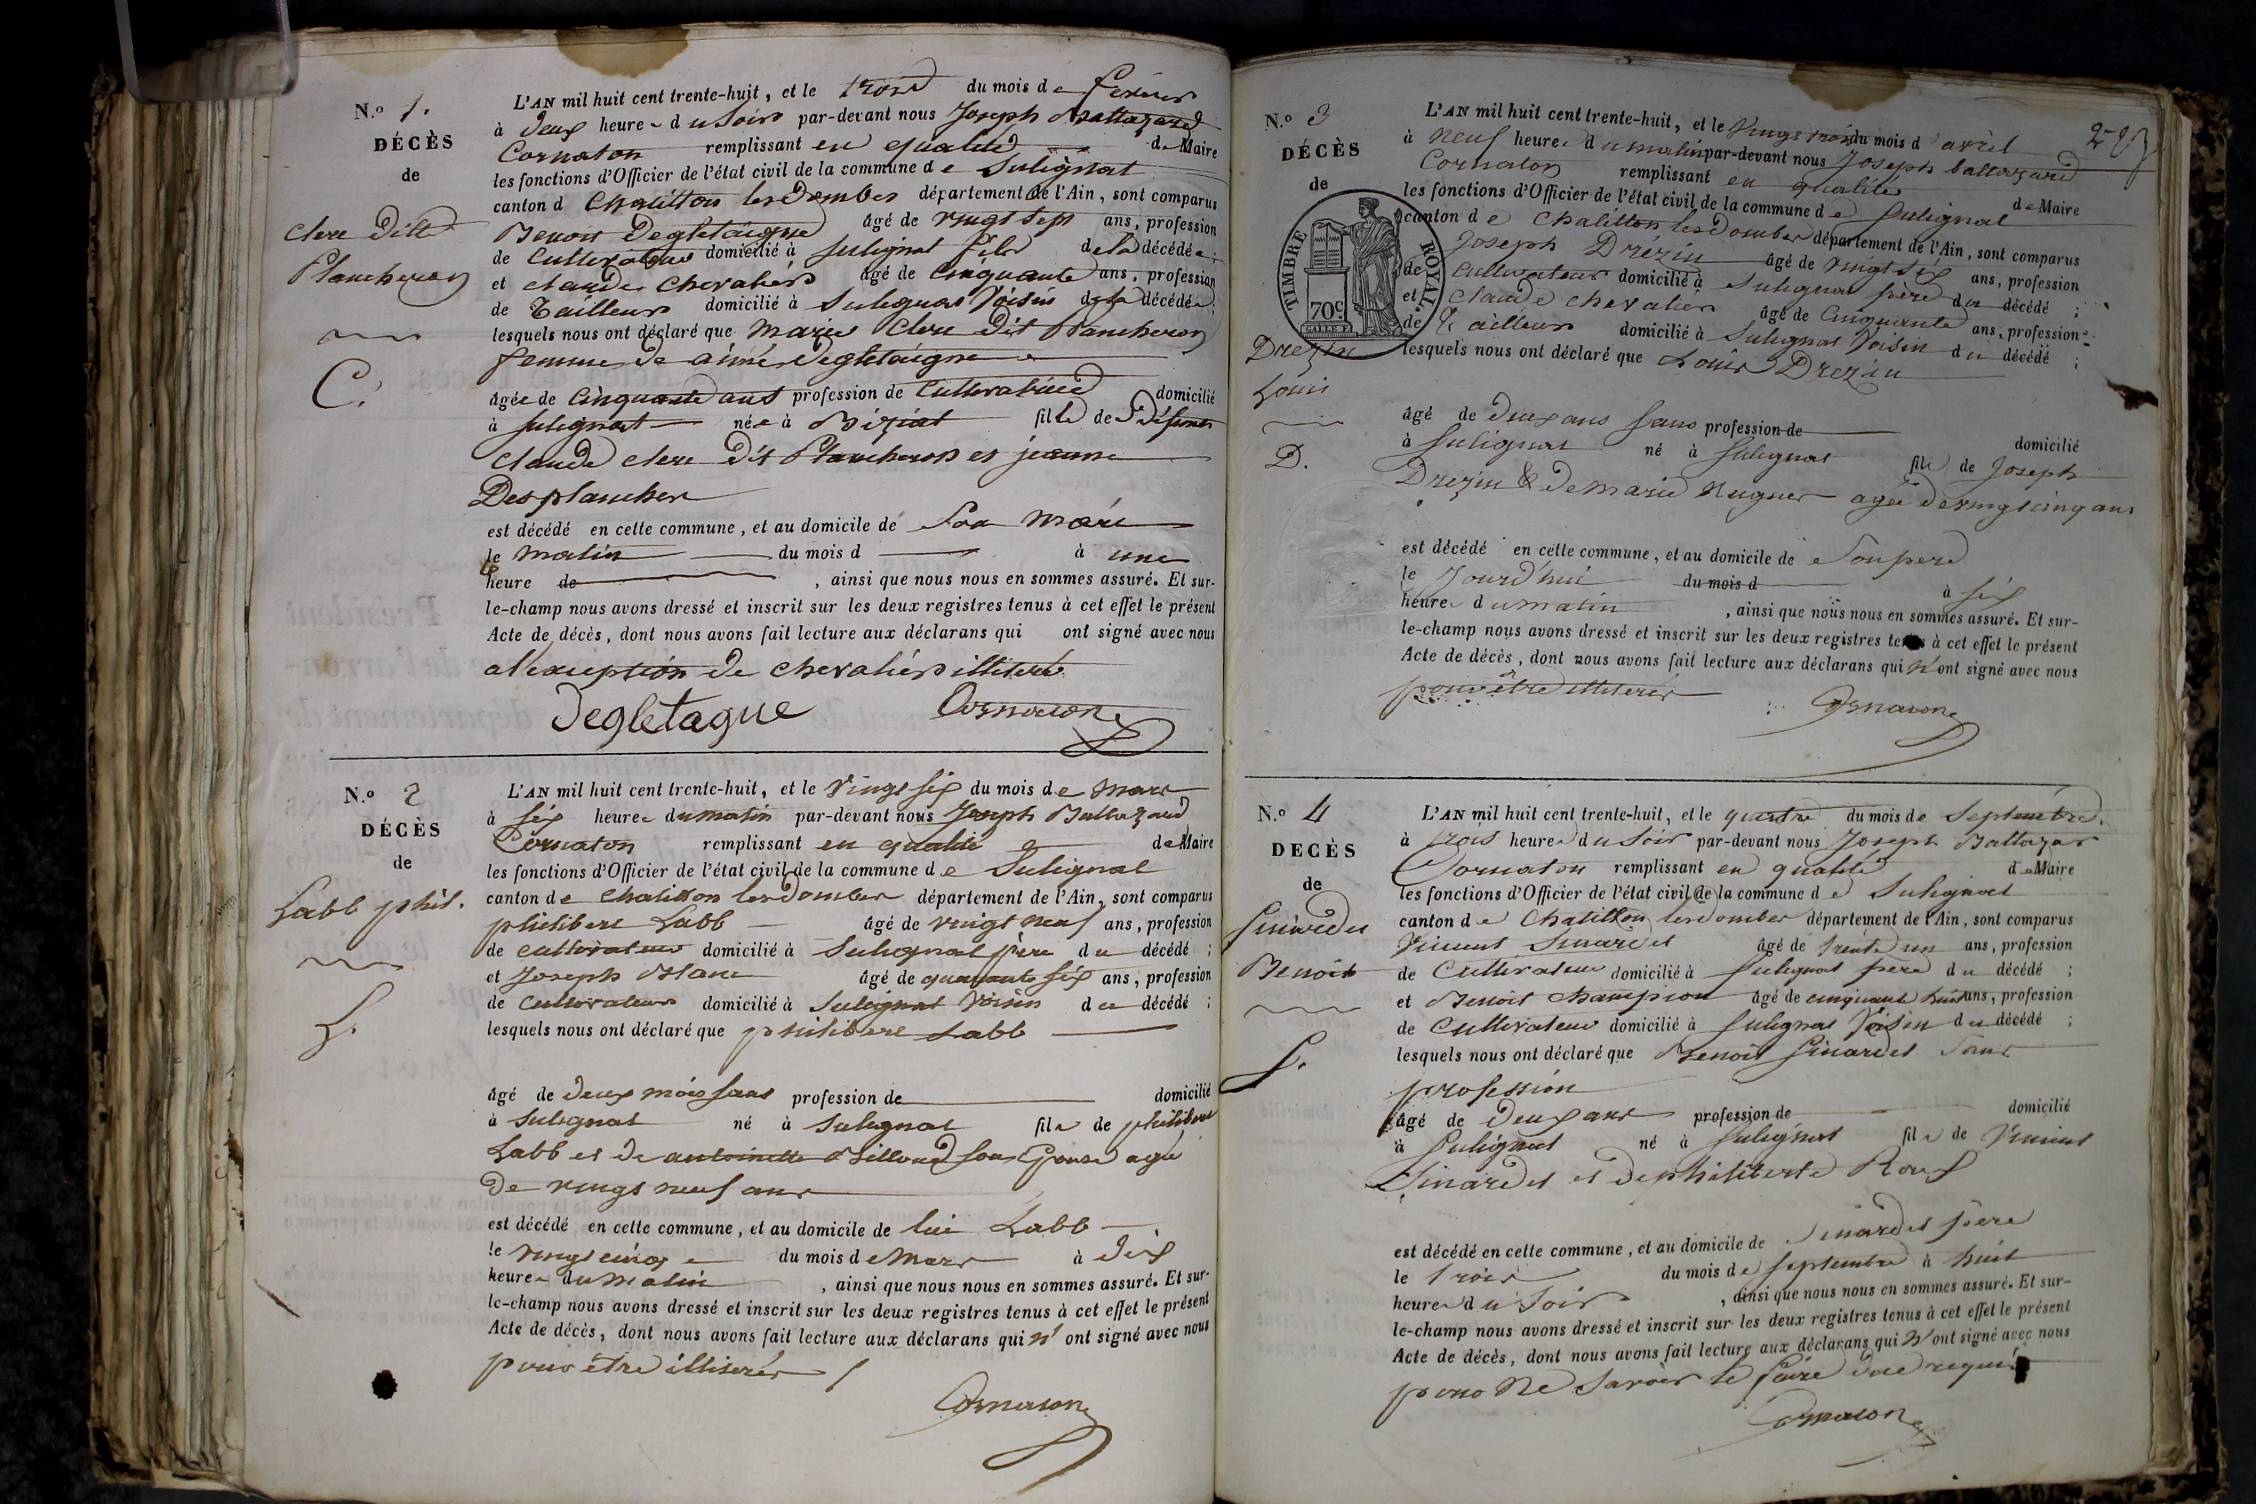 N.o 1.
DÉCÈS
de
Clerc Dit
Plancheron
C.
L'AN mil huit cent trente-huit, et le trois du mois de février
à deux heures du Soir par-devant nous Joseph Baltazard
Cornaton remplissant en qualité de Maire
les fonctions d'Officier de l'état civil de la commune de Sulignat
canton d Chatillon les Dombes département de l'Ain, sont comparus
Benoit Degletaigne âgé de vingt sept ans, profession
de Cultivateur domicilié à Sulignat fils de la décédée;
et claude Chevalier âgé de Cinquante ans, profession
de Tailleur domicilié à Sulignat Voisin de la décédée;
lesquels nous ont déclaré que Marie Clerc Dit Plancheron
femme de aimé Degletaigne
âgée de Cinquante ans profession de Cultivatrice domicilié
à Sulignat née à Méziat fille de Défunts
Claude clerc Dit Plancheron et jeanne
Desplanches
est décédé en cette commune, et au domicile de Son Mari
le matin du mois d à une
heure de , ainsi que nous nous en sommes assuré. Et sur-
le-champ nous avons dressé et inscrit sur les deux registres tenus à cet effet le présent
Acte de décès, dont nous avons fait lecture aux déclarans qui ont signé avec nous
a l'exception de Chevalier illiteré
Degletagne Cornaton
N.o 2
DÉCÈS
de
Labb phil.
L.
L'AN mil huit cent trente-huit, et le Vingt six du mois de Mars
à six heures du matin par-devant nous Joseph Baltazard
Cornaton remplissant en qualité de Maire
les fonctions d'Officier de l'état civil de la commune de Sulignat
canton de Chatillon les Dombes département de l'Ain, sont comparus
philibert Labb âgé de vingt neuf ans, profession
de cultivateur domicilié à Sulignat père du décédé;
et Joseph Blanc âgé de quarante six ans, profession
de Cultivateur domicilié à Sulignat Voisin du décédé;
lesquels nous ont déclaré que philibert Labb
âgé de deux mois sans profession de domicilié
à Sulignat né à Sulignat fils de philibert
Labb et de antoinette Billoud son Epouse agée
de vingt neuf ans
est décédé en cette commune, et au domicile de lui Labb
le vingt cinq du mois de Mars à dix
heures du matin , ainsi que nous nous en sommes assuré. Et sur-
le-champ nous avons dressé et inscrit sur les deux registres tenus à cet effet le présent
Acte de décès, dont nous avons fait lecture aux déclarans qui n'ont signé avec nous
pour être illiterés
Cornaton
N.o 3
DÉCÈS
de
TIMBRE ROYAL
70c
Drezin
Louis
D.
L'AN mil huit cent trente-huit, et le Vingt trois du mois d'avril
à neuf heures du matin par-devant nous Joseph baltazard
Cornaton remplissant en qualité de Maire
les fonctions d'Officier de l'état civil de la commune de Sulignat
canton de Chatillon les Dombes département de l'Ain, sont comparus
Joseph Drézin âgé de vingt six ans, profession
de cultivateur domicilié à Sulignat père du décédé;
et Claude chevalier âgé de Cinquante ans, profession
de Tailleur domicilié à Sulignat Voisin du décédé;
lesquels nous ont déclaré que Louis Drezin
âgé de deux ans sans profession de domicilié
à Sulignat né à Sulignat fils de Joseph
Drezin & de marie agée de vingt cinq ans
est décédé en cette commune, et au domicile de Son pere
le Jourd'hui du mois d à six
heures du matin , ainsi que nous nous en sommes assuré. Et sur-
le-champ nous avons dressé et inscrit sur les deux registres tenus à cet effet le présent
Acte de décès, dont nous avons fait lecture aux déclarans qui n'ont signé avec nous
pour être illiterés
Cornaton
N.o 4
DÉCÈS
de
Sinardet
Benoit
S.
L'AN mil huit cent trente-huit, et le quatre du mois de Septembre
à trois heures du Soir par-devant nous Joseph Baltazar
Cornaton remplissant en qualité de Maire
les fonctions d'Officier de l'état civil de la commune de Sulignat
canton de Chatillon les Dombes département de l'Ain, sont comparus
Vincent Sinardet âgé de trente un ans, profession
de Cultivateur domicilié à Sulignat pere du décédé;
et Benoit champion âgé de cinquante huit ans, profession
de Cultivateur domicilié à Sulignat Voisin du décédé;
lesquels nous ont déclaré que Benoit Sinardet Sans
profession
âgé de deux ans profession de domicilié
à Sulignat né à Sulignat fils de Vincent
Sinardet et de philiberte Roux
est décédé en cette commune, et au domicile de Sinardet père
le trois du mois de septembre à huit
heures du Soir , ainsi que nous nous en sommes assuré. Et sur-
le-champ nous avons dressé et inscrit sur les deux registres tenus à cet effet le présent
Acte de décès, dont nous avons fait lecture aux déclarans qui n'ont signé avec nous
pour ne Savoir le faire de ce requis
Cornaton